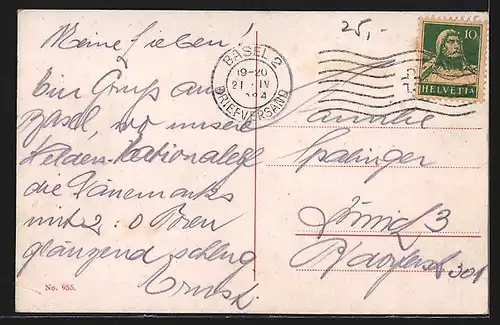 Meine Lieben!
Ein Gruß aus
Basel, wo unsere
Helden-Nationalelf
die Dänemarks
mit 2:0 Toren
glänzend schlug
Ernst.
No. 955.
25,-
BASEL 2
19-20
21 IV
BRIEFVERSAND
10
HELVETIA
Familie
Spalinger
Zürich 3
301